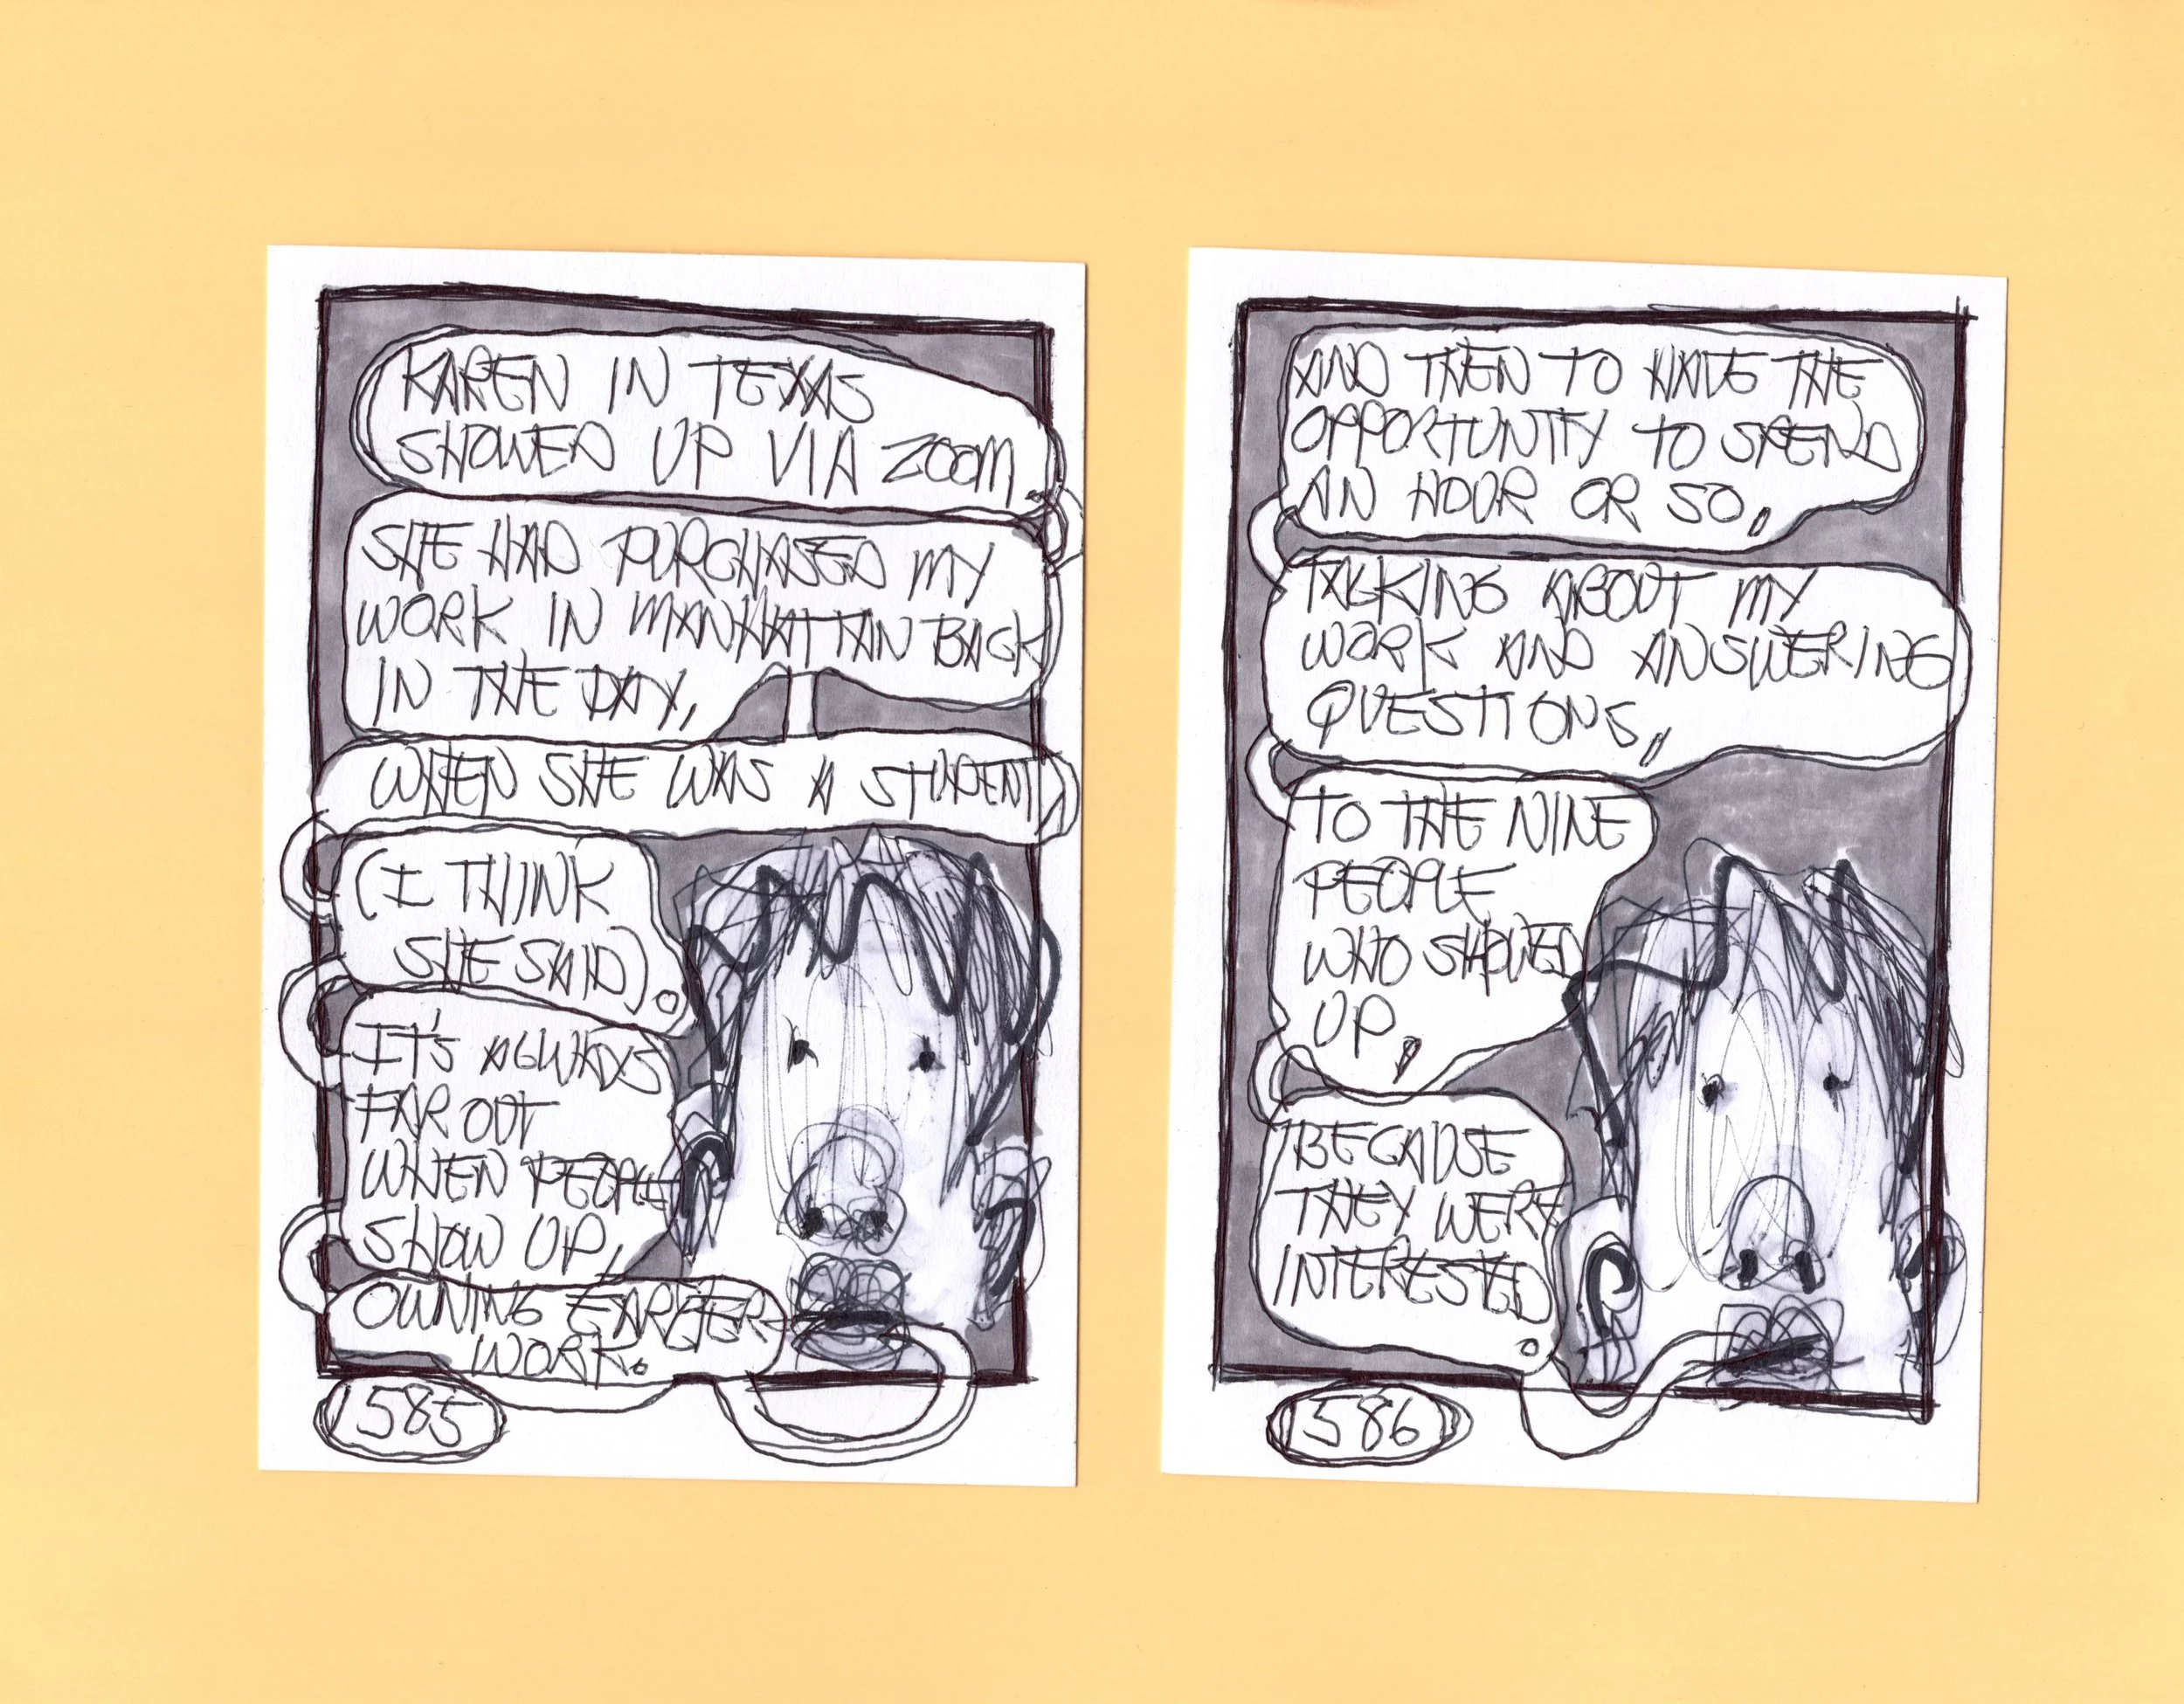 KAREN IN TEXAS
SHOWED UP VIA ZOOM.
SHE HAD PURCHASED MY
WORK IN MANHATTAN BACK
IN THE DAY,
WHEN SHE WAS A STUDENT
(I THINK
SHE SAID).
IT'S ALWAYS
FAR OUT
WHEN PEOPLE
SHOW UP,
OWNING EARLIER
WORK.
1585
AND THEN TO HAVE THE
OPPORTUNITY TO SPEND
AN HOUR OR SO,
TALKING ABOUT MY
WORK AND ANSWERING
QUESTIONS,
TO THE NINE
PEOPLE
WHO SHOWED
UP,
BECAUSE
THEY WERE
INTERESTED.
1586